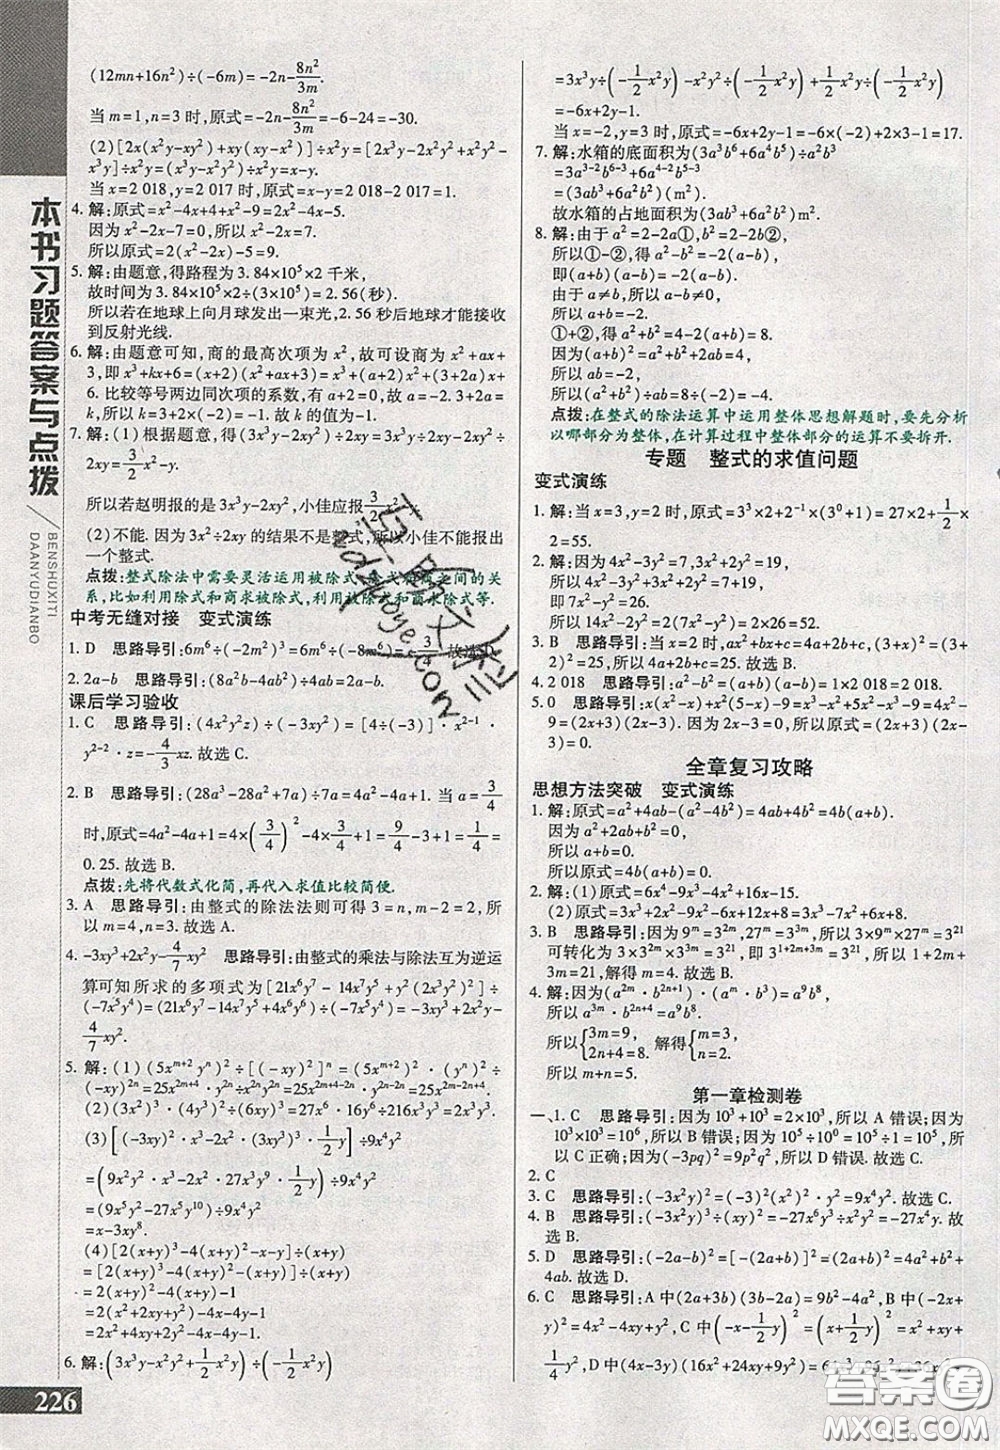 (12mn+16n²)÷(-6m)=-2n-8n²/3m.
当m=1,n=3时,原式=-2n-8n²/3m=-6-24=-30.
(2)[2x(x²y-xy²)+xy(xy-x²)]÷x²y=[2x³y-2x²y²+x²y²-
x³y]÷x²y=[x³y-x²y²]÷x²y=x-y.
当x=2 018,y=2 017时,原式=x-y=2 018-2 017=1.
4. 解:原式=x²-4x+4+x²-9=2x²-4x-5.
因为x²-2x-7=0,所以x²-2x=7.
所以原式=2(x²-2x)-5=9.
5. 解:由题意,得路程为3.84×10⁵×2千米,
故时间为3.84×10⁵×2÷(3×10⁵)=2.56(秒).
所以若在地球上向月球发出一束光,2.56秒后地球才能接收
到反射光线.
6. 解:由题意可知,商的最高次项为x²,故可设商为x²+ax+
3,即x³+kx+6=(x+2)(x²+ax+3)=x³+(a+2)x²+(2a+3)x+
6.比较等号两边同次项的系数,有a+2=0,故a=-2.3+2a=
k,所以k=3+2×(-2)=-1.故k的值为-1.
7. 解:(1)根据题意,得(3x³y-2xy²)÷2xy=3x³y÷2xy-2xy²÷
2xy=3/2x²-y.
所以若赵明报的是3x³y-2xy²,小佳应报3/2x²-y.
(2)不能.因为3x²÷2xy的结果不是整式,所以小佳不能报出
一个整式.
点拨:整式除法中需要灵活运用被除式、除式和商之间的关
系,比如利用除式和商求被除式,利用被除式和商求除式等.
中考无缝对接 变式演练
1. D 思路导引:6m⁶÷(-2m²)³=6m⁶÷(-8m⁶)=-3/4.故选D.
2. 2a-b 思路导引:(8a²b-4ab²)÷4ab=2a-b.
课后学习验收
1. C 思路导引:(4x²y²z)÷(-3xy²)=[4÷(-3)]·x²⁻¹·
y²⁻²·z=-4/3xz.故选C.
2. B 思路导引:(28a³-28a²+7a)÷7a=4a²-4a+1.当a=3/4
时,原式=4a²-4a+1=4×(3/4)²-4×3/4+1=9/4-3+1=
0.25.故选B.
点拨:先将代数式化简,再代入求值比较简便.
3. A 思路导引:由整式的除法法则可得3=n,m-2=2,所
以m=4,n=3.故选A.
4. -3xy+2x²y-4/7xy² 思路导引:由整式的乘法与除法互为逆运
算可知所求的多项式为[21x⁶y⁷-14x⁷y⁵+y²(2x³y²)²]÷
(-7x⁵y⁴)=(21x⁶y⁷-14x⁷y⁵+4x⁶y⁶)÷(-7x⁵y⁴)=-3xy³+2x²y-
4/7xy².
5. 解:(1)(5xᵐ⁺²yⁿ)²÷[(-xy)ⁿ]²=(5xᵐ⁺²)²·(yⁿ)²÷
(-xy)²ⁿ=25x²ᵐ⁺⁴·y²ⁿ÷x²ⁿy²ⁿ=25x²ᵐ⁺⁴⁻²ⁿ=25x²ᵐ⁻²ⁿ⁺⁴.
(3)[(-3xy)²·x³-2x²·(3xy²)³·1/2y]÷9x⁴y²
=(9x²y²·x³-2x²·27x³y⁶·1/2y)÷9x⁴y²
=(9x⁵y²-27x⁵y⁷)÷9x⁴y²
=x-3xy⁵.
(4)[2(x+y)³-4(x+y)²-x-y]÷(x+y)
=[2(x+y)³-4(x+y)²-(x+y)]÷(x+y)
=2(x+y)²-4(x+y)-1
=2(x²+2xy+y²)-4x-4y-1
=2x²+4xy+2y²-4x-4y-1.
6. 解:(3x³y-x²y²+1/2x²y)÷(-1/2x²y)
=3x³y÷(-1/2x²y)-x²y²÷(-1/2x²y)+1/2x²y÷(-1/2x²y)
=-6x+2y-1.
当x=-2,y=3时,原式=-6x+2y-1=12+6-1=17.
7. 解:水箱的底面积为(3a³b⁶+6a⁴b³)÷a²b³
=3a³b⁶÷a²b³+6a⁴b³÷a²b³
=(3ab³+6a²)(m²).
故水箱的占地面积为(3ab³+6a²)m².
8. 解:由于a²=2-2a①,b²=2-2b②,
所以①-②,得a²-b²=-2(a-b),
即(a+b)(a-b)=-2(a-b).
由于a≠b,所以a+b=-2.
所以a+b=-2.
①+②,得a²+b²=4-2(a+b)=8.
因为(a+b)²=4,
所以a²+2ab+b²=4,
即2ab=(a+b)²-(a²+b²)=4-8=-4.
所以ab=-2.
所以(a²+b²)÷ab=8÷(-2)=-4.
点拨:在整式的除法运算中运用整体思想解题时,要先分析
以哪部分为整体,在计算过程中整体部分的运算不要拆开.
专题 整式的求值问题
变式演练
1. 解:当x=3,y=2时,原式=3³×2+2⁻¹×(3⁰+1)=27×2+1/2×
2=55.
3. B 思路导引:当x=2时,ax²+bx+c=4a+2b+c,(x+
2)²=25,所以4a+2b+c=25.故选B.
4. 2 018 思路导引:a²-b²=(a+b)(a-b)=1×2 018=2 018.
全章复习攻略
思想方法突破 变式演练
1. 解:原式=4ab-(a²-4b²)=4ab+4b²=4b(a+b).
因为a²+2ab+b²=0,
所以(a+b)²=0.
所以a+b=0.
所以原式=4b(a+b)=0.
2. 解:(1)原式=6x⁴-9x³-4x²-14x+15.
3. B 思路导引:因为9ᵐ=3²ᵐ,27ᵐ=3³ᵐ,所以3×9ᵐ×27ᵐ=3²¹
可转化为3×3²ᵐ×3³ᵐ=3²¹,即3¹⁺²ᵐ⁺³ᵐ=3²¹,所以1+2m+
3m=21,解得m=4.故选B.
4. 解:因为(a²ᵐ·b²ⁿ⁺¹)·(aᵐ·b³)=a⁹b⁸,
所以a³ᵐ·b²ⁿ⁺⁴=a⁹b⁸.
所以{3m=9, 2n+4=8. 解得{m=3, n=2.
第一章检测卷
一、1. C 思路导引:因为10³+10³=2×10³,所以A错误;因为
10³×10³=10⁶,所以B错误;因为10⁵÷10⁰=10⁵÷1=10⁵,所
以C正确;因为(-3pq)²=9p²q²,所以D错误.故选C.
2. C
3. C 思路导引:(-3x²y)²=(-3)²(x²)²·y²=9x⁴y².故选C.
5. D 思路导引:(-2a-b)²=[-(2a+b)]²=(2a+b)²=4a²+b²+
4ab.故选D.
226
本书习题答案与点拨
BENSHUXITI
DAANYUDIANBO
答案圈
MXQE.COM